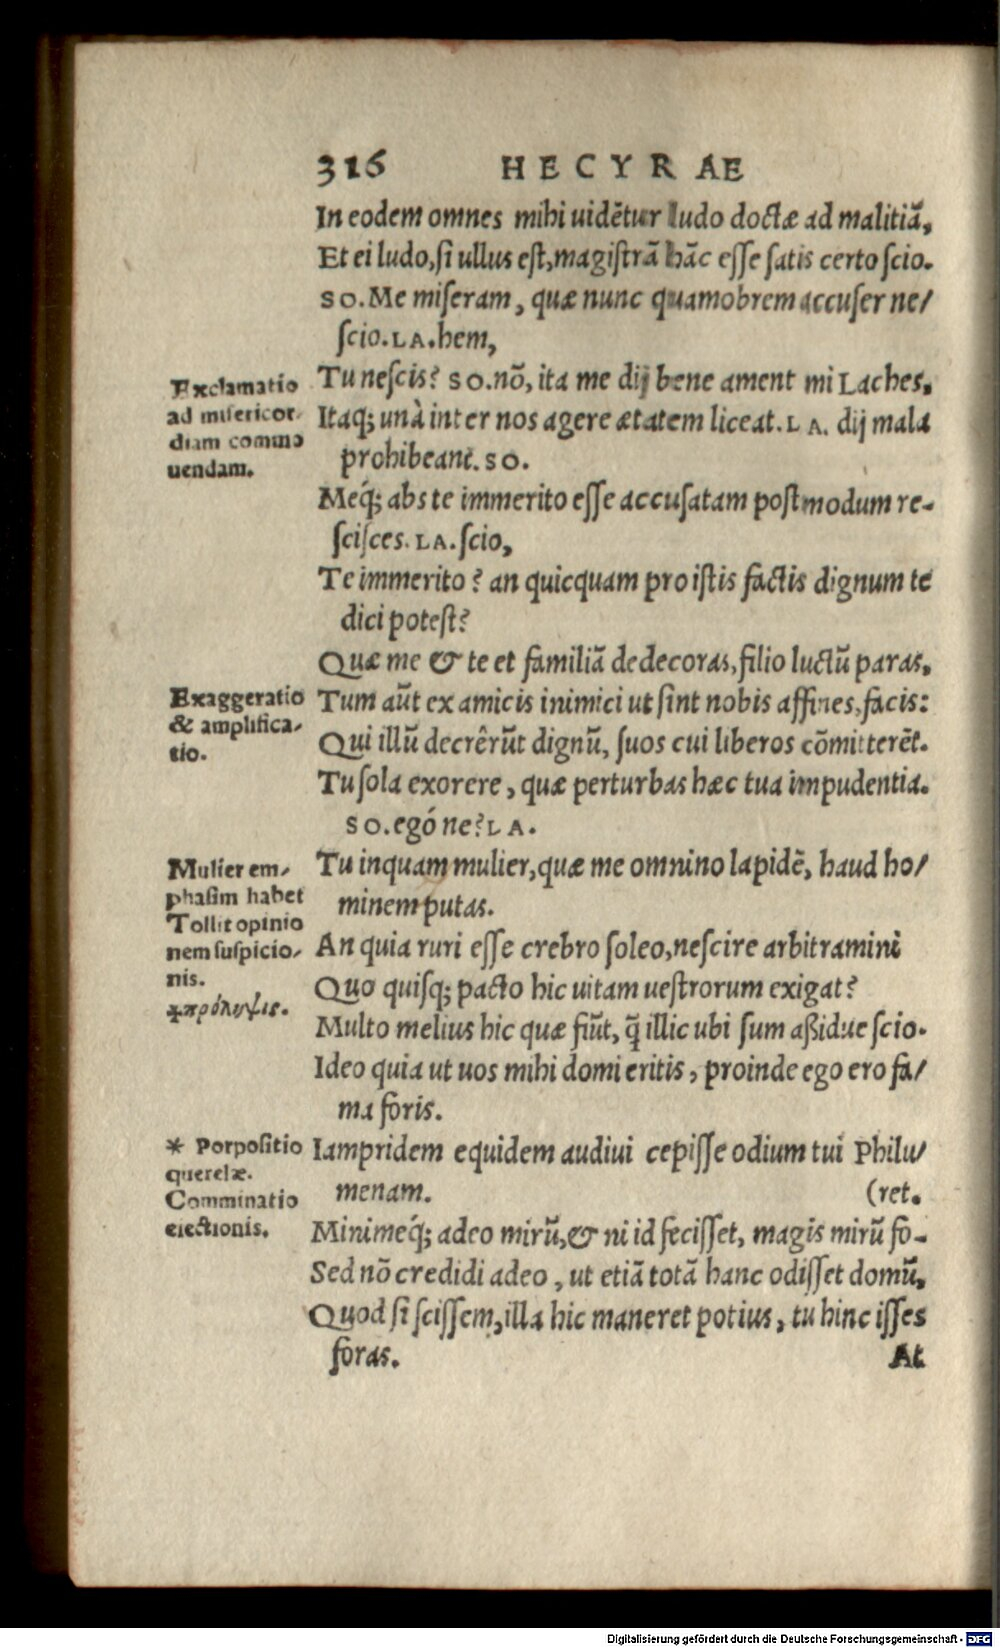 316 HECYRAE
In eodem omnes mihi uidẽtur ludo doctæ ad malitiã,
Et ei ludo, ſi ullus eſt, magiſtrã hãc eſſe ſatis certo ſcio.
SO. Me miſeram, quæ nunc quamobrem accuſer ne/
ſcio. LA. hem,
Tu neſcis? SO. nõ, ita me dij bene ament mi Laches,
Itaq; unà inter nos agere ætatem liceat. LA. dij mala
prohibeant. SO.
Meq́; abs te immerito eſſe accuſatam poſtmodum re-
ſciſces. LA. ſcio,
Te immerito? an quicquam pro iſtis factis dignum te
dici poteſt?
Quæ me & te et familiã dedecoras, filio luctũ paras,
Tum aũt ex amicis inimici ut ſint nobis affines, facis:
Qui illũ decrêrũt dignũ, ſuos cui liberos cõmitterẽt.
Tu ſola exorere, quæ perturbas hæc tua impudentia.
SO. egó ne? LA.
Tu inquam mulier, quæ me omnino lapidẽ, haud ho/
minem putas.
An quia ruri eſſe crebro ſoleo, neſcire arbitramini
Quo quiſq; pacto hic uitam ueſtrorum exigat?
Multo melius hic quæ fiũt, q̃ illic ubi ſum aßidue ſcio.
Ideo quia ut uos mihi domi eritis, proinde ego ero fa/
ma foris.
Iampridem equidem audiui cepiſſe odium tui Philu/
menam. (ret.
Minimeq́; adeo mirũ, & ni id feciſſet, magis mirũ fo-
Sed nõ credidi adeo, ut etiã totã hanc odiſſet domũ,
Quod ſi ſciſſem, illa hic maneret potius, tu hinc iſſes
foras. At
Exclamatio
ad miſericor
diam commo
uendam.
Exaggeratio
& amplifica/
tio.
Mulier em/
phaſim habet
Tollit opinio
nem ſuſpicio/
nis.
πρόληψις.
* Porpoſitio
querelæ.
Comminatio
eiectionis.
Digitalisierung gefördert durch die Deutsche Forschungsgemeinschaft - DFG